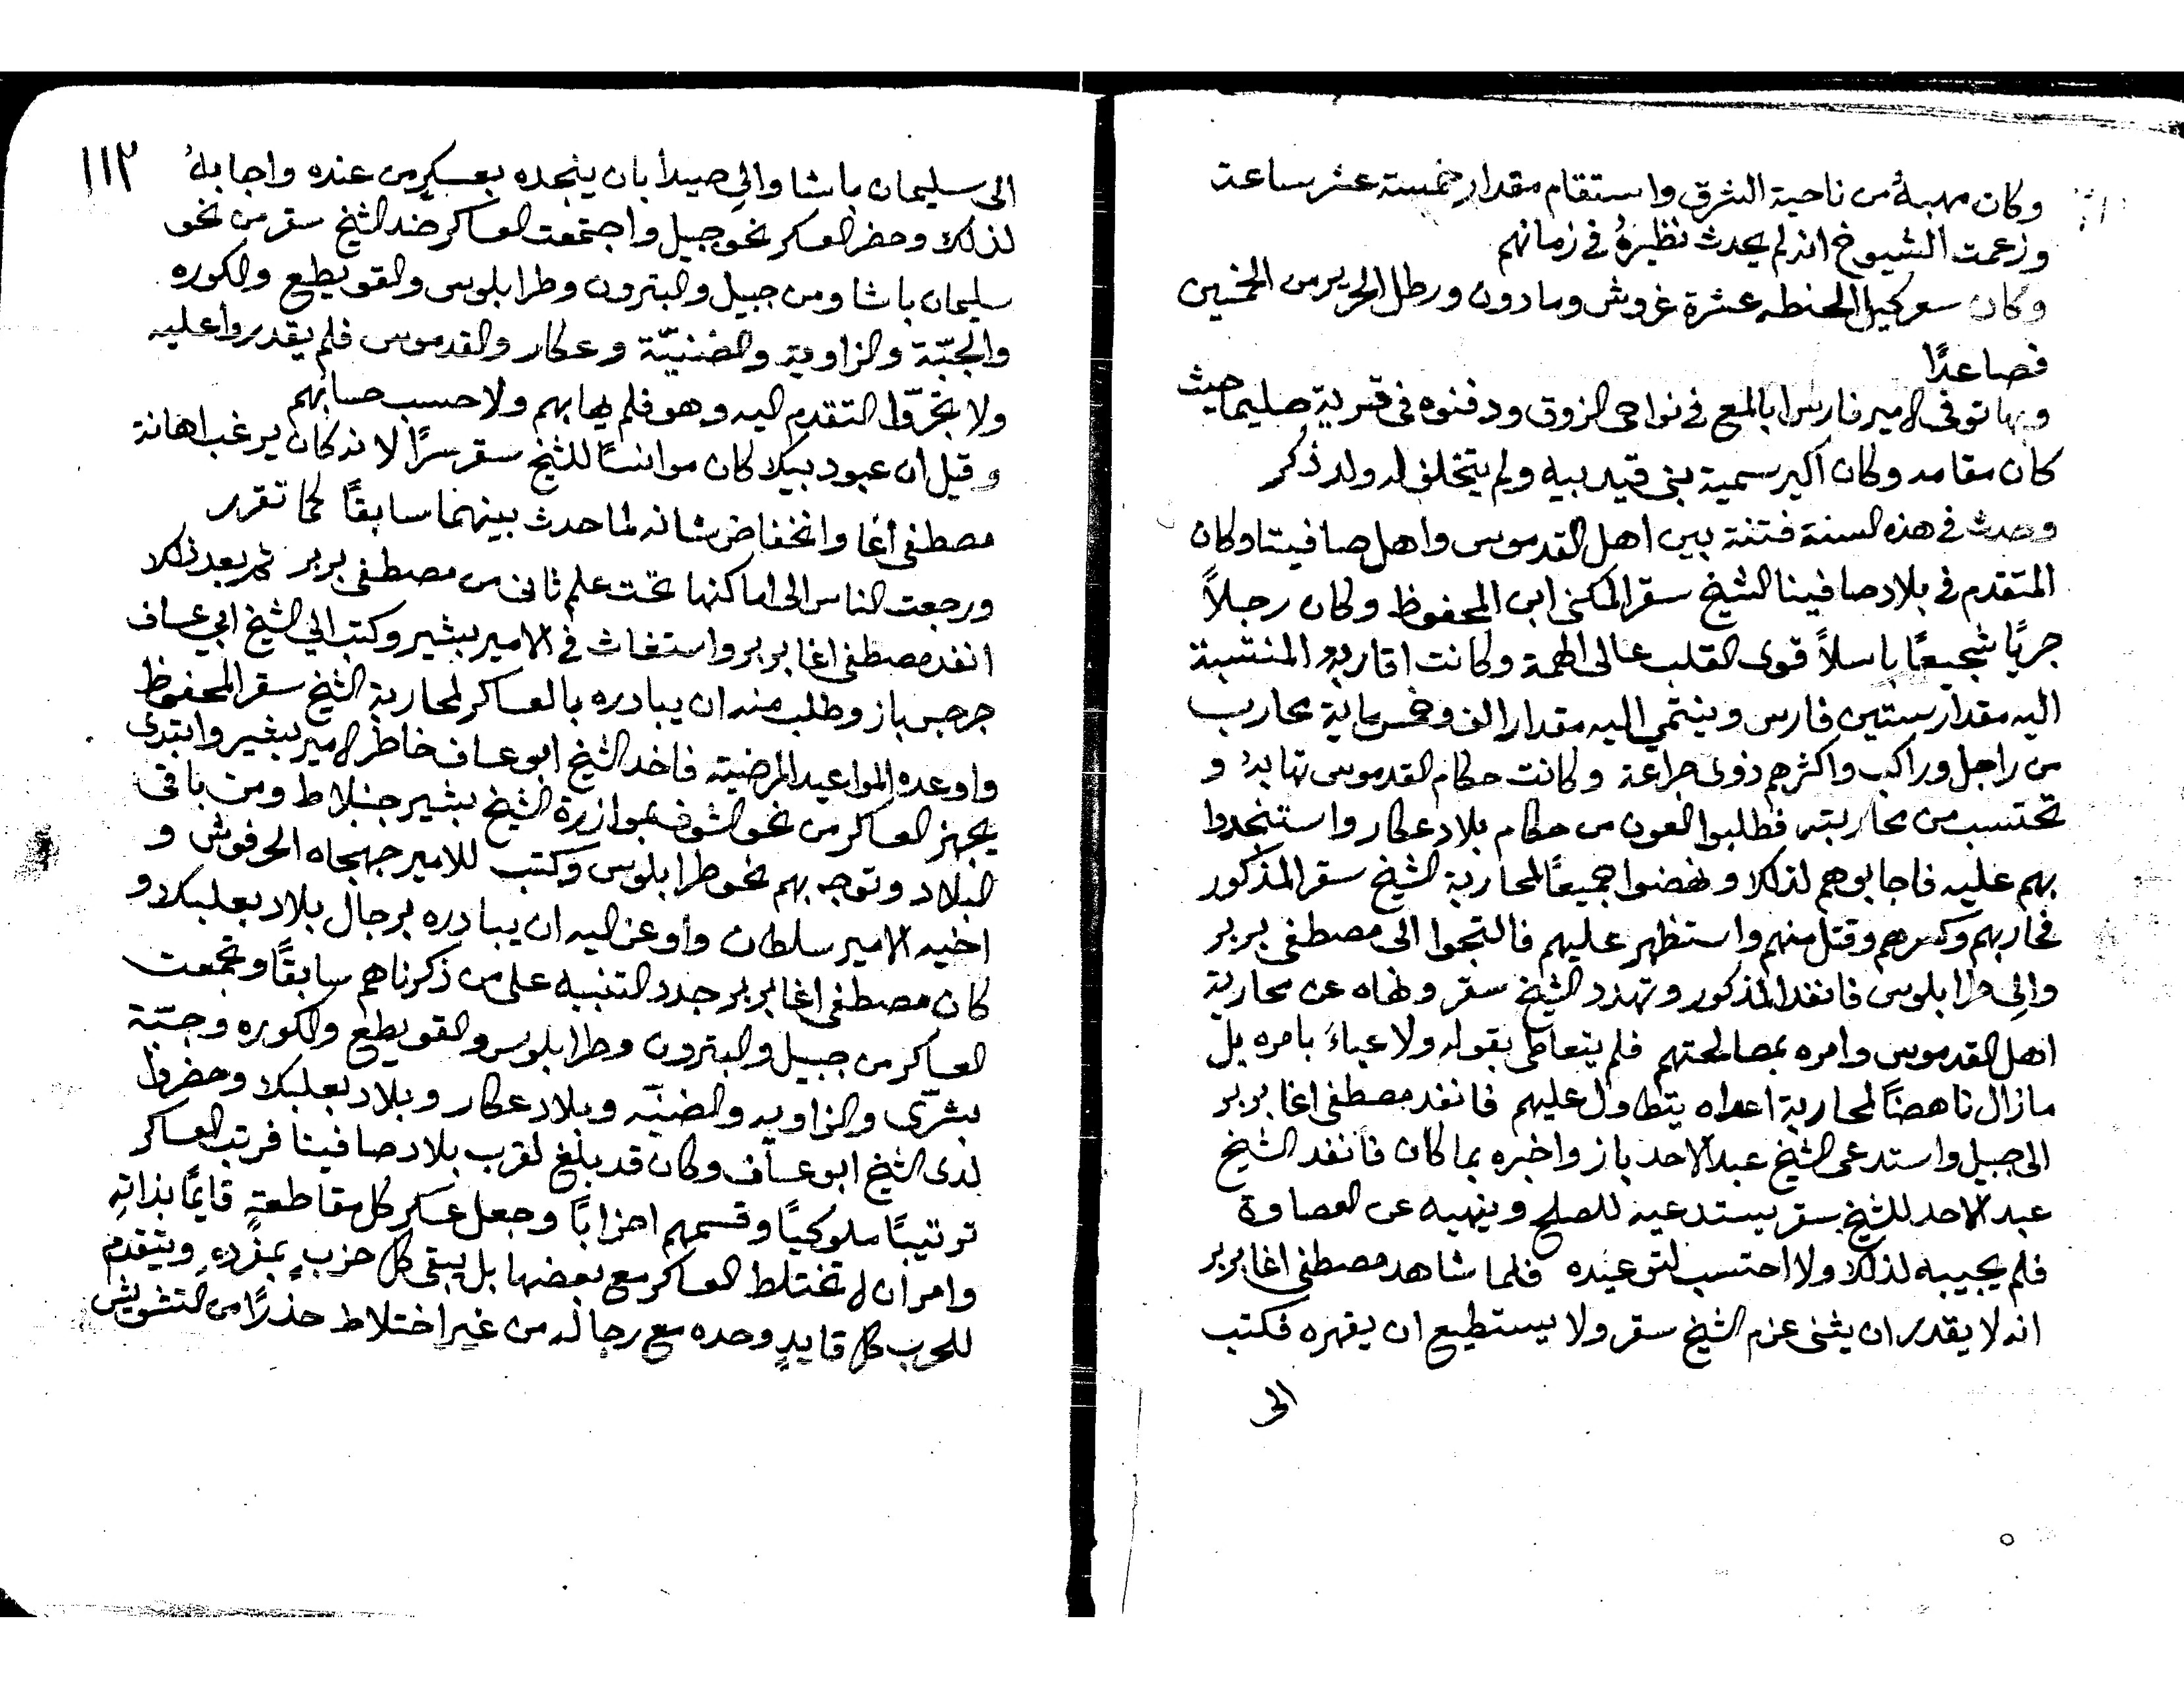 وكان مهبهُ من ناحية الشرق واستقام مقدار خمسة عشر ساعة
وزعمت الشيوخ انه لم يحدث نظيرهُ في زمانهم
وكان سعر كيل الحنطه عشرة غروش وما دون ورطل الحرير من الخمسين
فصاعدًا
وبها توفى الامير فارس ابالمع في نواحى الزوق ودفنوه في قرية صليما حيث
كان مقامه وكان اكبر سمية بنى قيد بيه ولم يتخلف له ولد ذكر
وحدث في هذه السنة فتنة بين اهل القدموس واهل صافيتا وكان
المتقدم في بلاد صافيتا الشيخ سقر المكنى ابن المحفوظ وكان رجلاً
جريًا شجيعًا باسلاً قوى القلب عالى الهمة وكانت اقاربهُ المنتسبة
اليه مقدار ستين فارس وينتمي اليه مقدار الف وخمسماية محارب
من راجل وراكب واكثرهم ذوى جراعة وكانت حكام القدموس تهابهُ و
تحتسب من محاربته فطلبوا العون من حكام بلاد عكار واستنجدوا
بهم عليه فاجابوهم لذلك ونهضوا جميعًا لمحاربة الشيخ سقر المذكور
فحاربهم وكسرهم وقتل منهم واستظهر عليهم فالتجوا الى مصطفى بربر
والِى طرابلوس فانفد المذكور وتهدد الشيخ سقر ونهاه عن محاربة
اهل القدموس وامره بمصالحتهم فلم يتعاطى بقوله ولا عباءَ بامره بل
مازال ناهضًا لمحاربة اعداه يتطاول عليهم فانفد مصطفى اغا بربر
الى جبيل واستدعى الشيخ عبد الاحد باز واخبره بما كان فانفد الشيخ
عبد الاحد للشيخ سقر يستدعيه للصلح وينهيه عن العصاوة
فلم يجيبه لذلك ولا احتسب لتوعيده فلما شاهد مصطفى اغا بربر
انه لا يقدر ان يثنى عزم الشيخ سقر ولا يستطيع ان يقهره فكتب
الى
١١٢
الى سليمان باشا والِى صيدا بان ينجده بعسكرٍ من عنده واجابهُ
لذلك وحضر العسكر نحو جبيل واجتمعت العساكر ضد الشيخ سقر من نحو
سليمان باشا ومن جبيل والبترون وطرابلوس والقويطع والكوره
والجبّة والزاوية والضنيّة وعكار والقدموس فلم يقدروا عليه
ولا تجرّوا التقدم اليه وهو فلم يهابهم ولا حسب حسابهم
وقيل ان عبود بيك كان موانسًا للشيخ سقر سرًا لانه كان يرغب اهانة
مصطفى اغا وانخفاض شانه لما حدث بينهما سابقًا كما تقرر
ورجعت الناس الى اماكنها تحت علم ثانى من مصطفى بربر ثم بعد ذلك
انفد مصطفى اغا بربر واستغاث في الامير بشير وكتب الي الشيخ ابي عساف
جرجس باز وطلب منه ان يبادره بالعساكر لمحاربة الشيخ سقر المحفوظ
واوعده المواعيد المرضية فاخد الشيخ ابو عساف خاطر الامير بشير وابتدى
يجهز العساكر من نحو الشوف بموازرة الشيخ بشير جنبلاط ومن باقى
البلاد وتوجه بهم نحو طرابلوس وكتب للامير جهجاه الحرفوش و
اخيه الامير سلطان واوعز اليه ان يبادره برجال بلاد بعلبك و
كان مصطفى اغا بربر جدد التنبيه على من ذكرناهم سابقًا وتجمعت
العساكر من جبيل والبترون وطرابلوس والقويطع والكوره وجبّة
بشرّى والزاويه والضنيّه وبلاد عكار وبلاد بعلبك وحضروا
لدى الشيخ ابو عساف وكان قد بلغ لقرب بلاد صافيتا فرتب العساكر
ترتيبًا ملوكيًا وقسمهم احزابًا وجعل عسكر كل مقاطعةٍ قايمًا بذاتهِ
وامر ان لا تختلط العساكر مع بعضها بل يبقى كل حزبٍ بمفردهِ ويتقدم
للحرب كل قايدٍ وحده مع رجاله من غير اختلاط حذرًا من التشويش